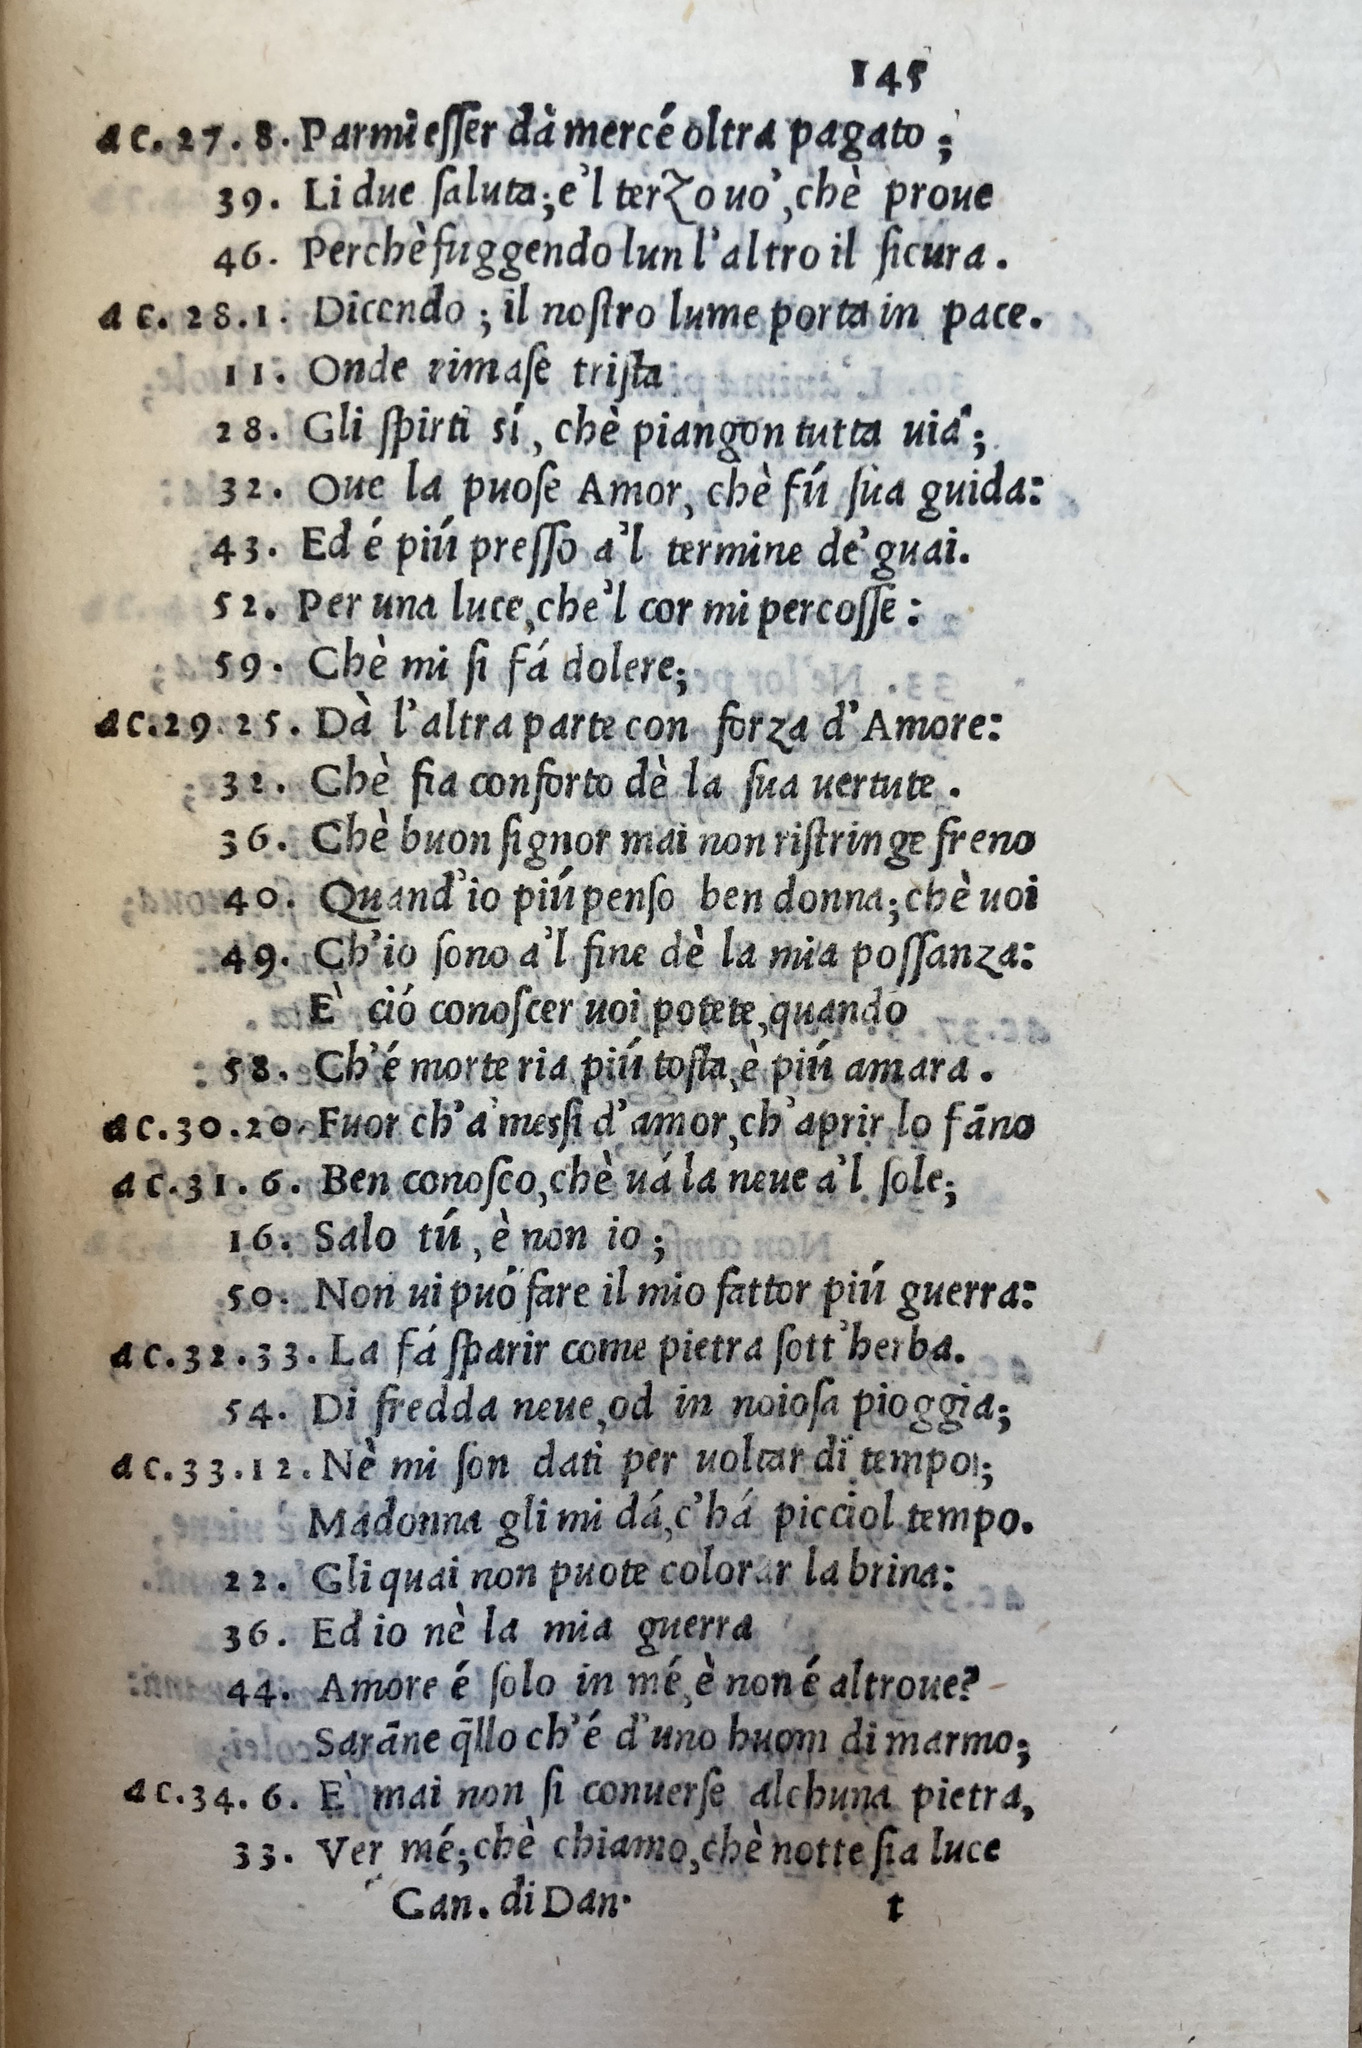 145
ac. 27. 8. Parmi esser dà mercé oltra pagato;
39. Li due saluta; e'l terzo uo', chè proue
46. Perchè fuggendo lun l'altro il sicura.
ac. 28. 1. Dicendo; il nostro lume porta in pace.
11. Onde rimase trista
28. Gli spirti sí, chè piangon tutta uia;
32. Oue la puose Amor, chè fú sùa guida:
43. Ed é piú presso a'l termine de' guai.
52. Per una luce, che'l cor mi percosse:
59. Chè mi si fá dolere;
ac. 29. 25. Dà l'altra parte con forza d'Amore:
32. Chè sia conforto dè la sua uertute.
36. Chè buon signor mai non ristringe freno
40. Quand'io piú penso ben donna; chè uoi
49. Ch'io sono a'l fine dè la mia possanza:
E' ció conoscer uoi potete, quando
58. Ch'é morte ria piú tosta, è piú amara.
ac. 30. 20. Fuor ch'a' messi d'amor, ch'aprir lo fāno
ac. 31. 6. Ben conosco, chè uá la neue a'l sole;
16. Salo tú, è non io;
50. Non ui puó fare il mio fattor piú guerra:
ac. 32. 33. La fá sparir come pietra sott'herba.
54. Di fredda neue, od in noiosa pioggia;
ac. 33. 12. Nè mi son dati per uoltar di tempo;
Madonna gli mi dá, c'há picciol tempo.
22. Gli quai non puote colorar la brina:
36. Ed io nè la mia guerra
44. Amore é solo in mé, è non é altroue?
Sarāne q̄llo ch'é d'uno huom di marmo;
ac. 34. 6. E' mai non si conuerse alchuna pietra,
33. Ver mé; chè chiamo, chè notte sia luce
Can. di Dan. t